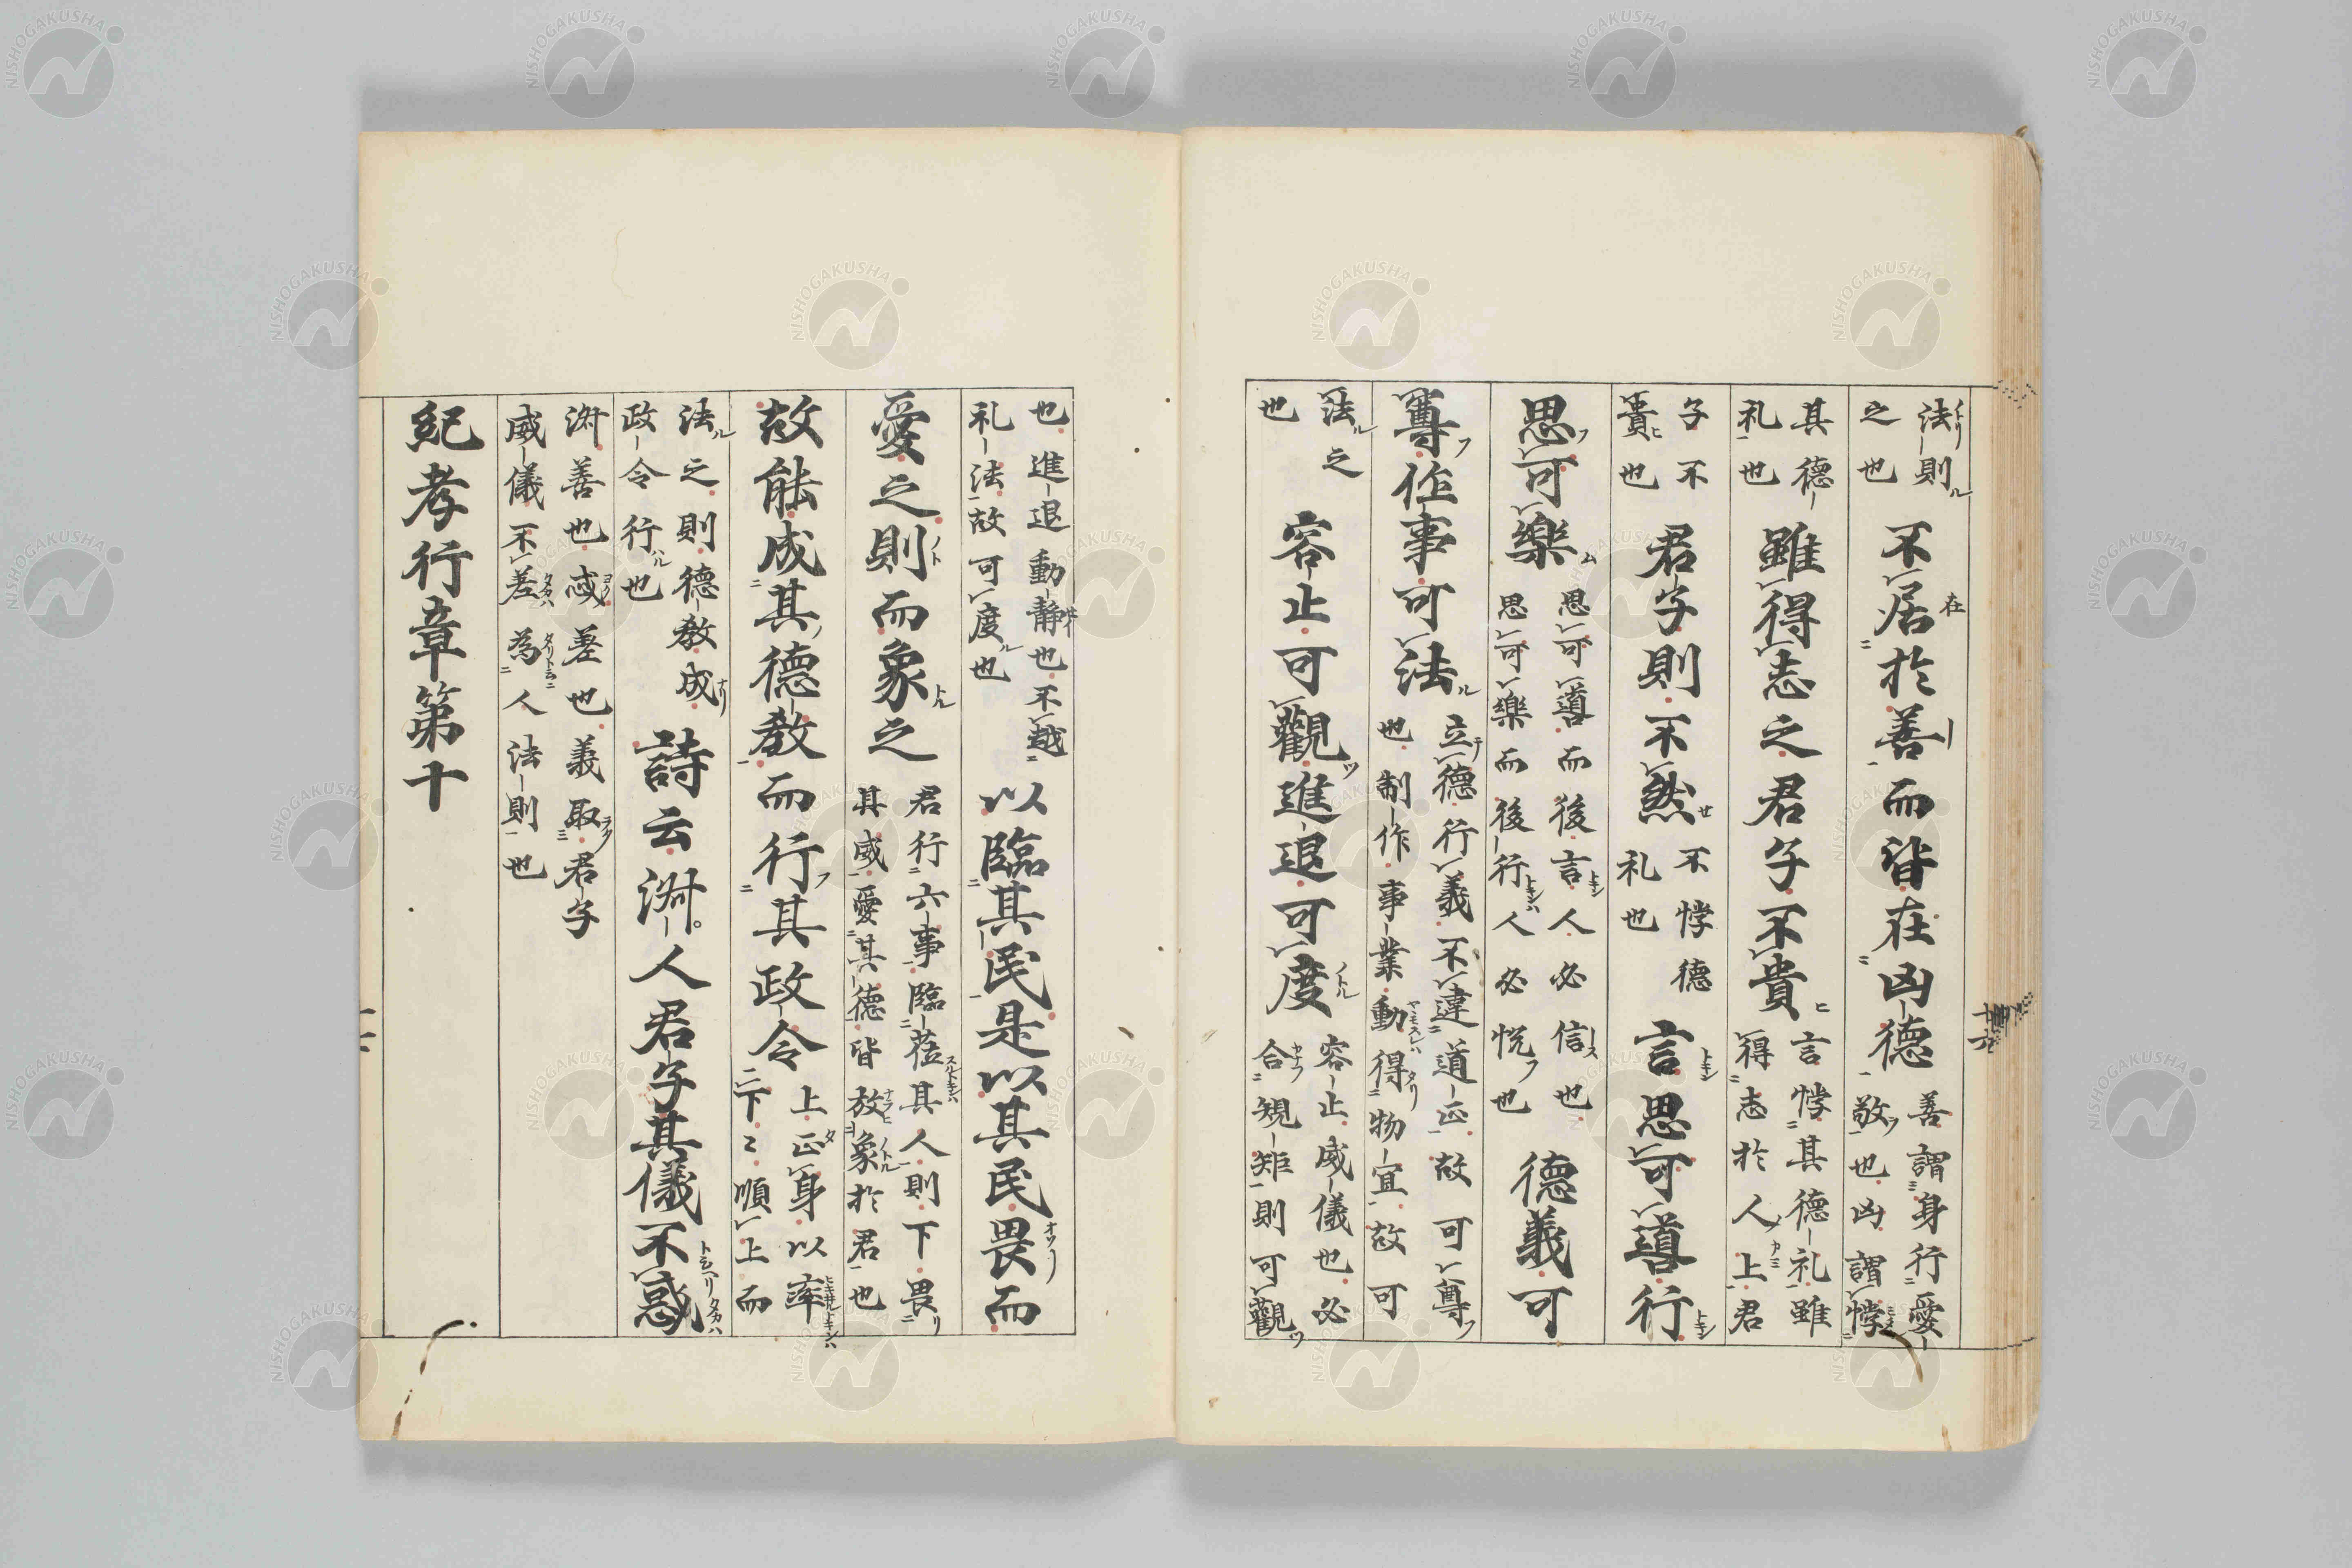 法則
之也
不居於善而皆在凶德
善謂身行愛
敬也凶謂悖
其德
礼也
雖得志之君子不貴
言悖其德礼雖
得志於人上君
子不
貴也
君子則不然
不悖德
礼也
言思可道行
思可樂
思可道而後言人必信也
思可樂而後行人必悦也
德義可
尊作事可法
立德行義不違道正故可尊
也制作事業動得物宜故可
法之
也
容止可觀進退可度
容止威儀也必
合規矩則可觀
也進退動静也不越
礼法故可度也
以臨其民是以其民畏而
愛之則而象之
君行六事臨莅其人則下畏
其威愛其德皆放象於君也
故能成其德教而行其政令
上正身以率
下下順上而
法之則德教成
政令行也
詩云淑人君子其儀不忒
淑善也忒差也義取君子
威儀不差為人法則也
紀孝行章第十